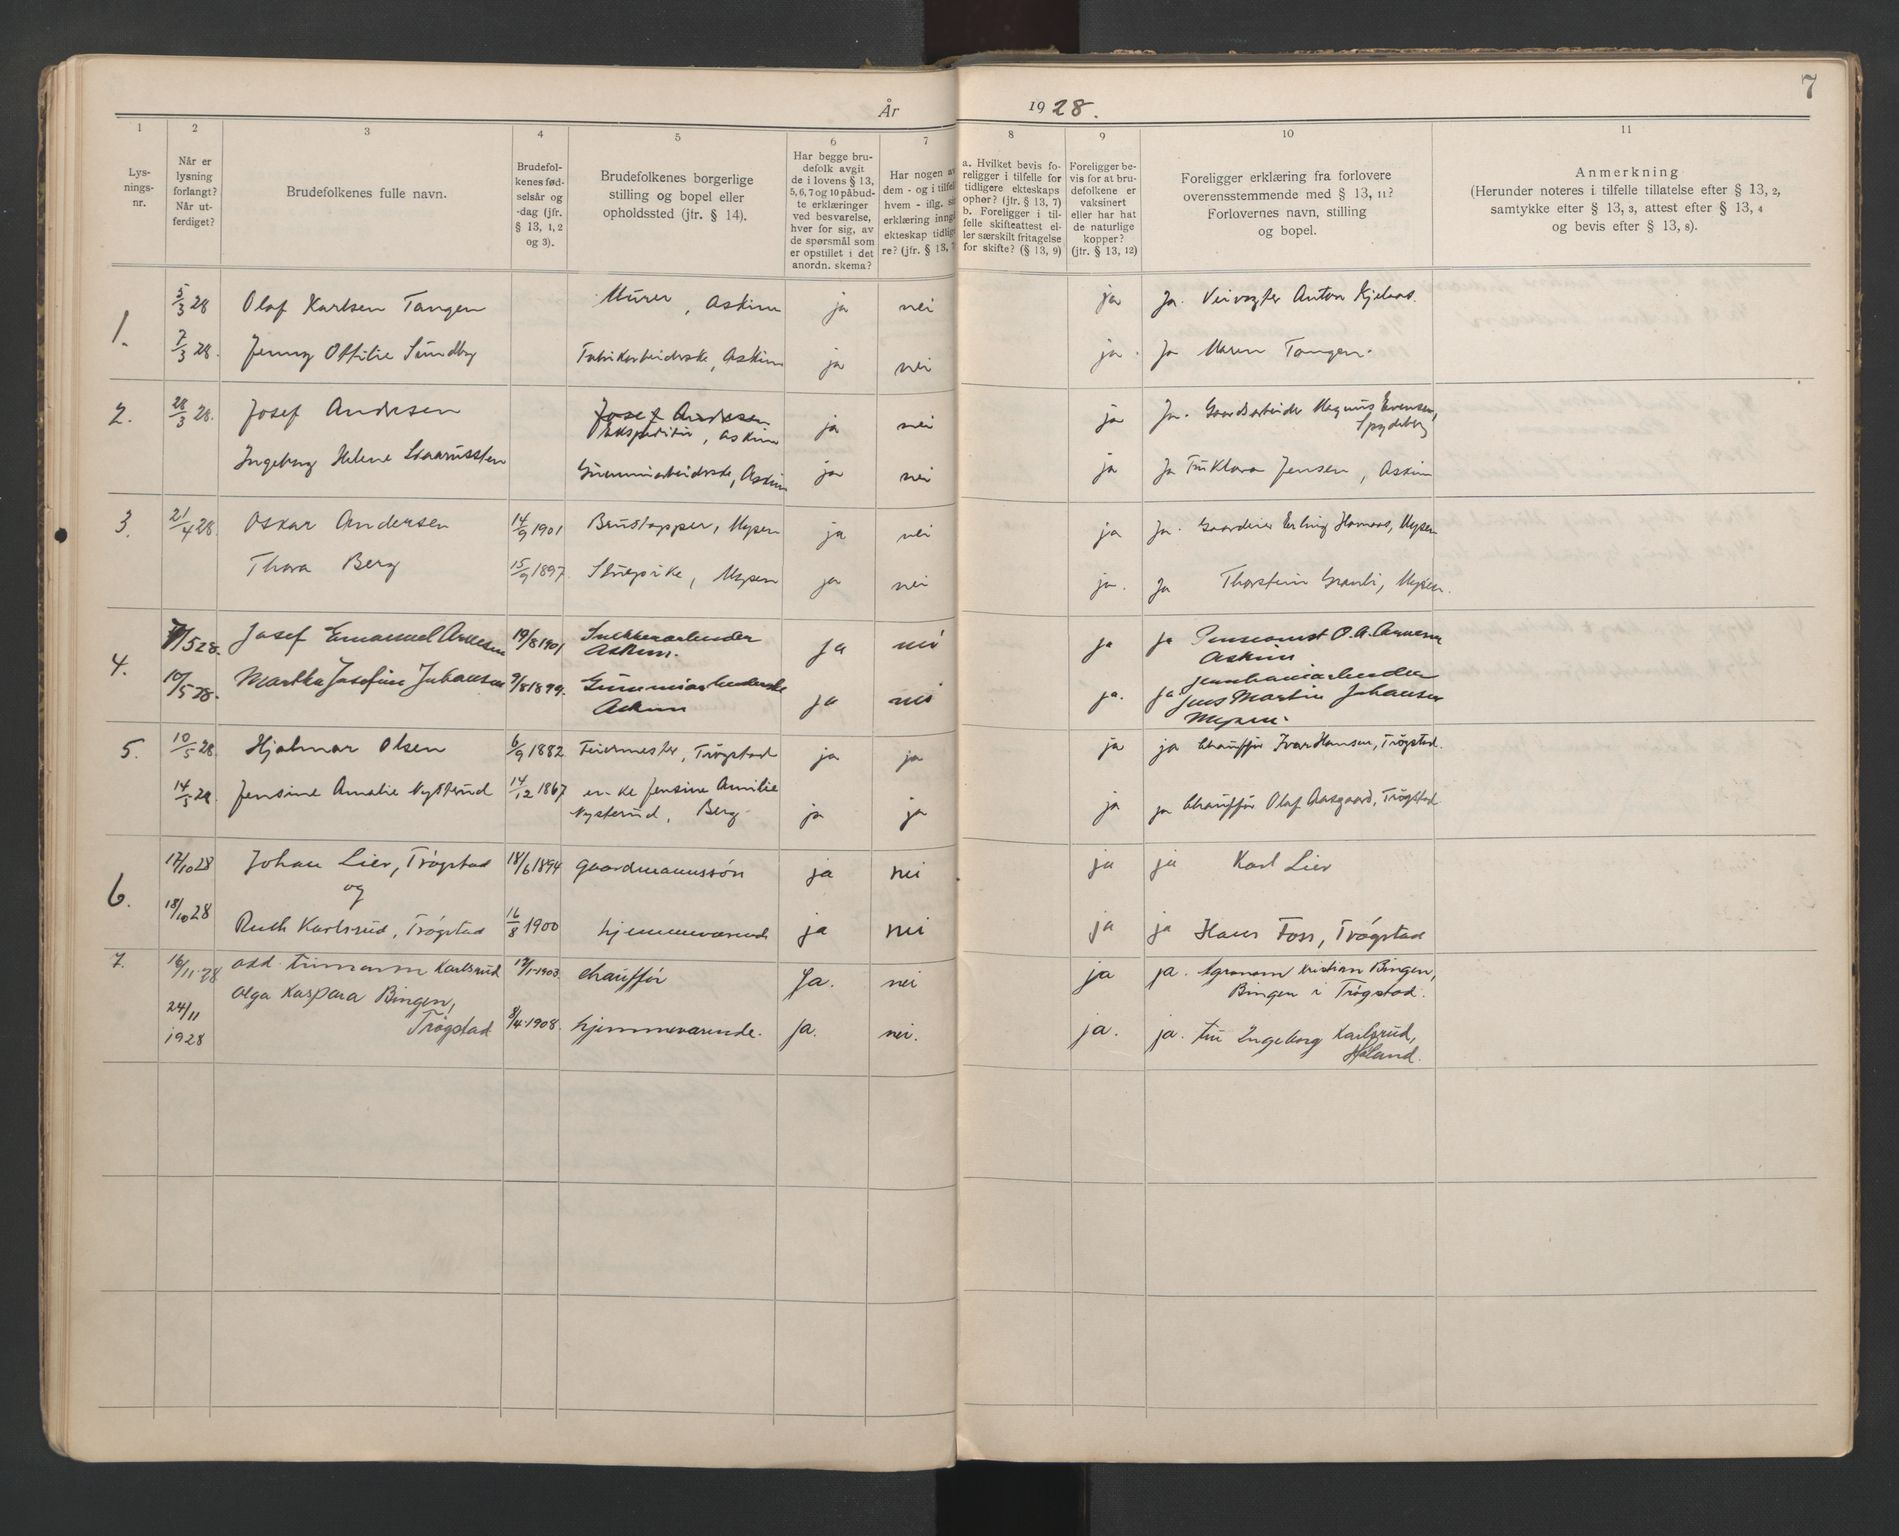 År 1928.
7
1 2 3 4 5 6 7 8 9 10 11
Lys-
nings-
nr.
Når er
lysning
forlangt?
Når ut-
ferdiget?
Brudefolkenes fulle navn.
Brudefol-
kenes fød-
selsår og
-dag (jfr.
§ 13, 1, 2
og 3).
Brudefolkenes borgerlige
stilling og bopel eller
opholdssted (jfr. § 14).
Har begge bru-
defolk avgit
de i lovens § 13,
5, 6, 7 og 10 påbud-
te erklæringer
ved besvarelse,
hver for sig, av
de spørsmål som
er opstillet i det
anordn. skema?
Har nogen av
dem - og i tilfelle
hvem - iflg. sin
erklæring inngått
ekteskap tidlige-
re? (jfr. § 13, 7
a. Hvilket bevis fo-
religger i tilfelle for
tidligere ekteskaps
ophør? (jfr. § 13, 7)
b. Foreligger i til-
felle skifteattest el-
ler særskilt fritagelse
for skifte? (§ 13, 9)
Foreligger be-
vis for at bru-
defolkene er
vaksinert
eller har hat
de naturlige
kopper?
(jfr. § 13, 12)
Foreligger erklæring fra forlovere
overensstemmende med § 13, 11?
Forlovernes navn, stilling
og bopel.
Anmerkning
(Herunder noteres i tilfelle tillatelse efter § 13, 2,
samtykke efter § 13, 3, attest efter § 13, 4
og bevis efter § 13, 8).
1. 5/3 28 Olaf Karlsen Tangen Murer, Askim ja nei ja Ja. Veivogter Anton Kjelaas.
7/3 28. Jenny Ottilie Sundby Fabrikarbeiderske, Askim ja nei ja. Ja Maren Tangen.
2. 28/3 28. Josef Andresen Josef Andresen
Ekspeditør, Askim ja nei ja Ja. Gaardsarbeider Magnus Evensen,
Spydeberg
Ingeborg Helene Gummiarbeiderske, Askim ja nei ja Ja Fru Klara Jensen, Askim
3. 21/4 28. Oskar Andersen 14/9 1901 Brustapper, Mysen ja nei ja Ja. Gaardeier Erling Homaas, Mysen
Thora Berg 15/9 1897. Stuepike, Mysen ja nei ja. Ja Thorstein Mysen.
4. 9/5 28. Josef Emanuel Arnesen 19/8 1901 Snekkerarbeider
Askim. ja nei ja ja Pensionist O. A. Arnesen
Askim
10/5 28. Martha Josefine Johansen 9/8 1899. Gummiarbeiderske
Askim ja nei ja. ja jernbanearbeider
Jens Martin Johansen
Mysen.
5. 10/5 28. Hjalmar Olsen 6/9 1882 Feiermester, Trøgstad ja ja ja ja Chauffør Ivar Hansen, Trøgstad.
14/5 28. Jensine Amalie Nysterud 14/12 1867 en-ke Jensine Amilie
Nysterud, Berg ja ja ja ja Chauffør Olaf Aasgaard, Trøgstad.
6. 17/10 28 Johan Lier, Trøgstad 18/6 1894 gaardmannssøn ja nei ja ja Karl Lier
og
18/10 28 Ruth Karlsrud, Trøgstad 16/8 1900 hjemmeværende ja nei ja ja Hans Foss, Trøgstad
7. 16/11-28 Odd Karlsrud 17/1-1903. chauffør Ja. nei ja ja. Agronom Kristian Bingen,
Bingen i Trøgstad.
Olga Kaspara Bingen,
24/11
1928 Trøgstad 8/4-1908. hjemmeværende. Ja. nei. ja. ja. fru Ingeborg Karlsrud,
Høland.